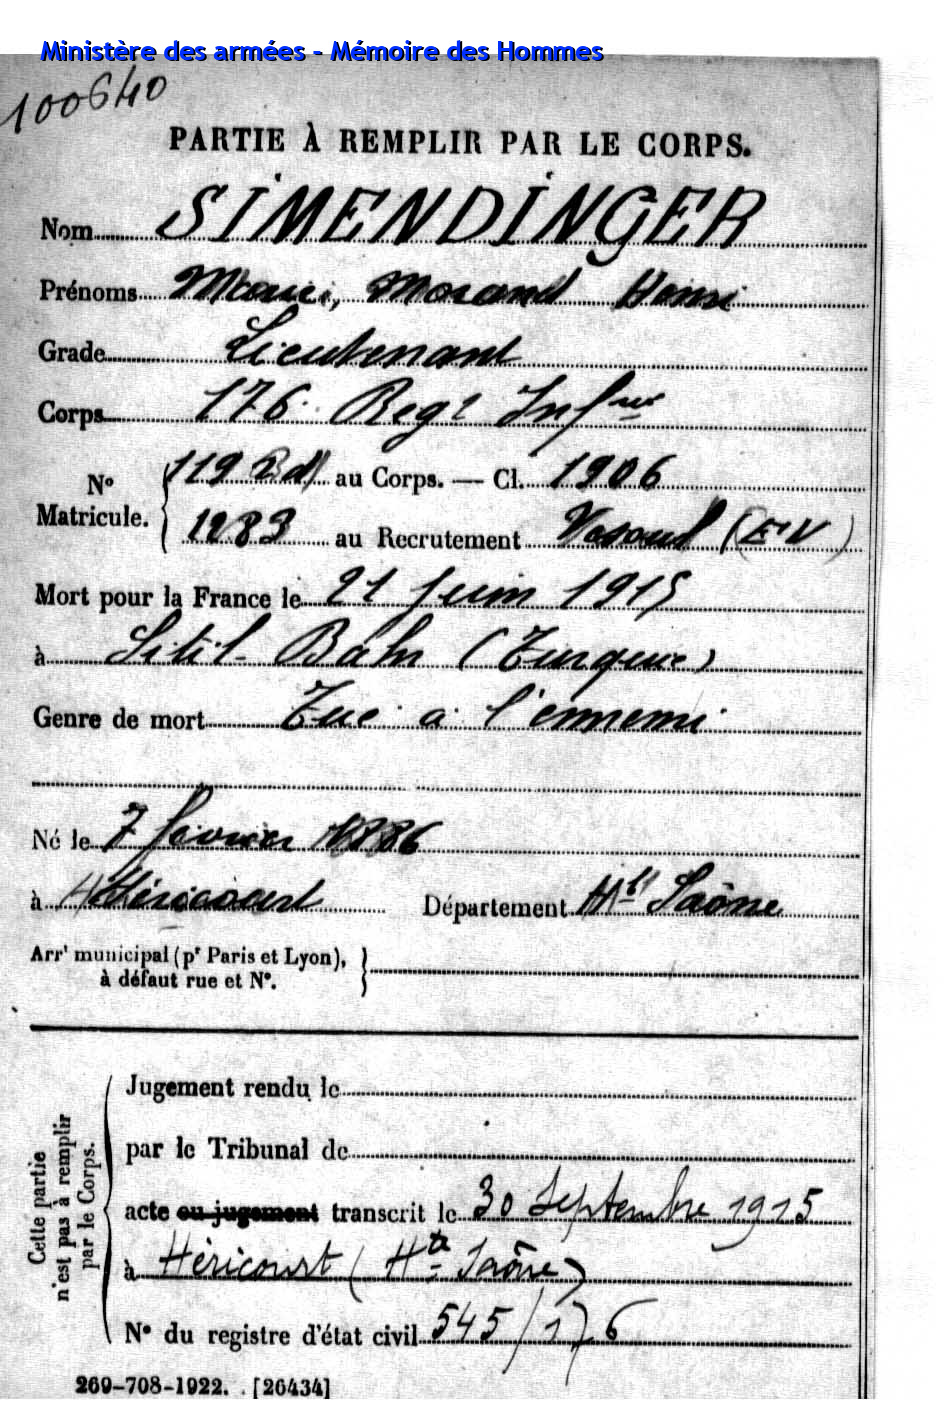 Ministère des armées - Mémoire des Hommes
100640
PARTIE À REMPLIR PAR LE CORPS.
Nom SIMENDINGER
Prénoms Marie, Morand Henri
Grade Lieutenant
Corps 176. Regt Infrie
No Matricule. { 1192 au Corps. — Cl. 1906
1283 au Recrutement Vesoul (EV)
Mort pour la France le 21 Juin 1915
à Sitil-Bahr (Turquie)
Genre de mort Tué à l'ennemi
Né le 7 février 1886
à Héricourt Département Hte Saône
Arrt municipal (pr Paris et Lyon), }
à défaut rue et N°.
Cette partie n'est pas à remplir par le Corps.
Jugement rendu le
par le Tribunal de
acte ou jugement transcrit le 30 Septembre 1915
à Héricourt (Hte Saône)
N° du registre d'état civil 545/176
269-708-1922. [26434]